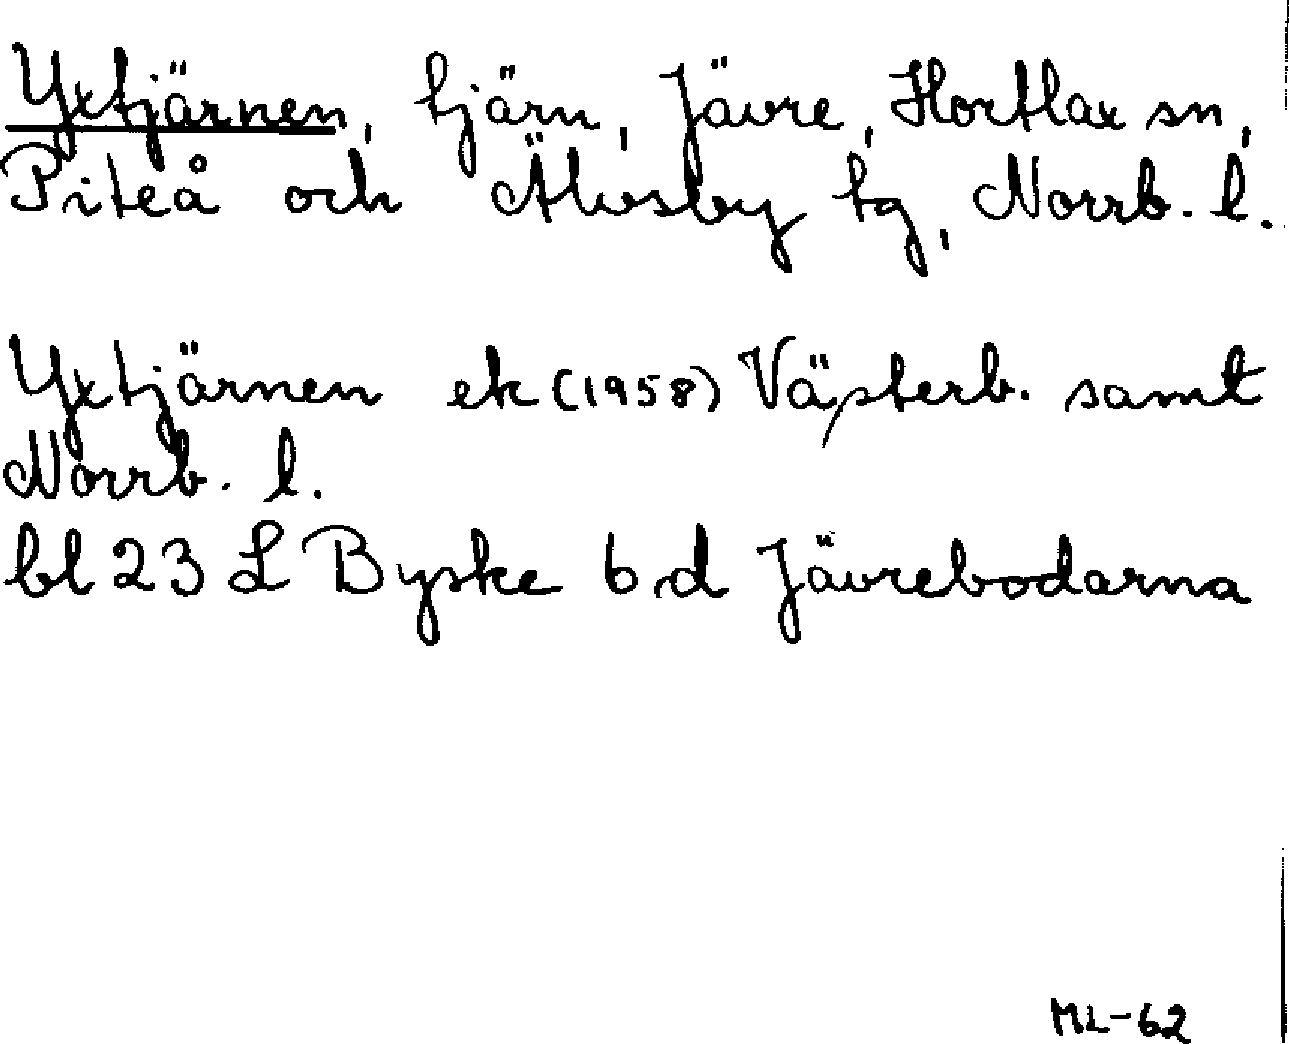 Yxtjärnen, tjärn, Jävre, Hortlax sn,
Piteå och Älvsby tg, Norrb. l.
Yxtjärnen ek (1958) Västerb. samt
Norrb. l.
bl 23 L Byske 6 d Jävrebodarna
ML-62